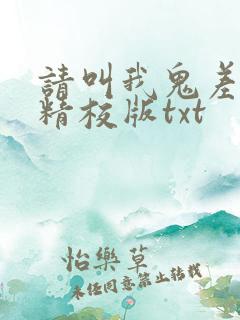 請叫我鬼差
精校版txt
怡樂草
未任同意禁止轉載